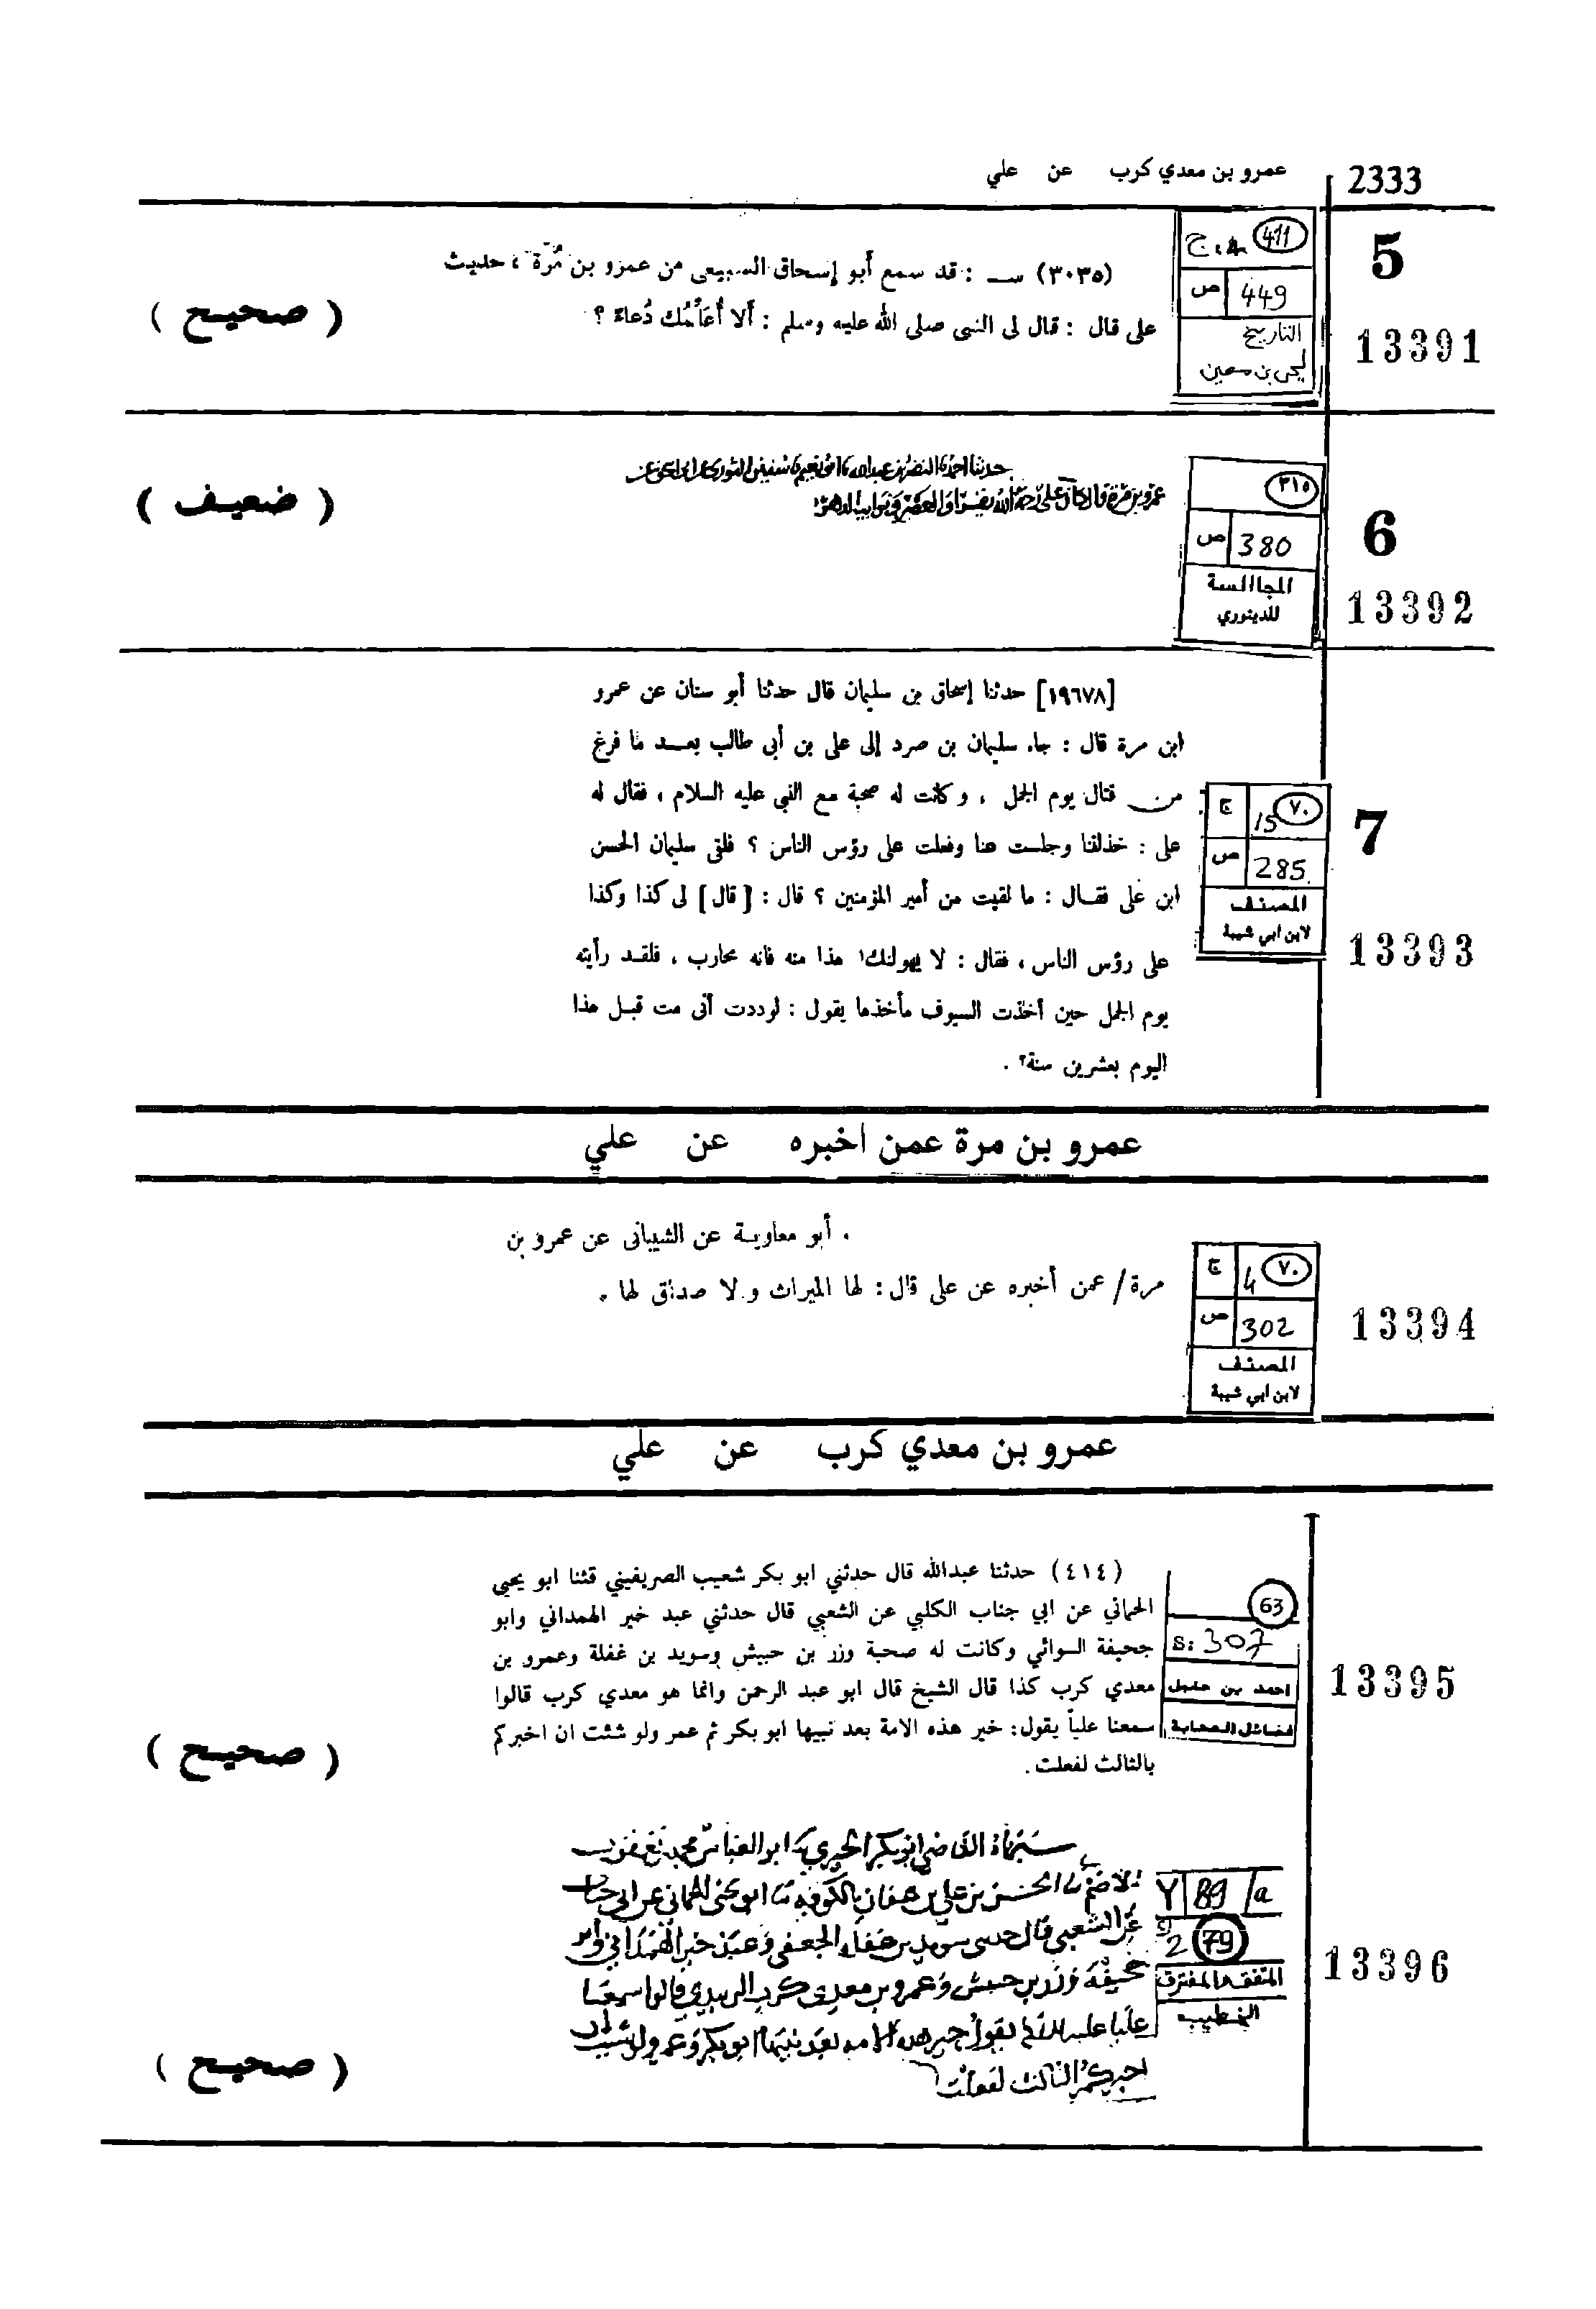 2333
عمرو بن معدي كرب عن علي
5
13391
411
ج 4
ص 449
التاريخ
ليحيى بن معين
(٣٠٣٥) ســ : قد سمع أبو إسحاق السبيعى من عمرو بن مُرّة ، حديث
على قال : قال لى النبى صلى الله عليه وسلم : ألا أُعَلِّمُك دُعاءً ؟
( صحيح )
6
13392
٣١٥
ص 380
المجاالسة
للدينوري
حدثنا احمد نا النضر بن عبدالله نا ابو نعيم نا سفين الثوري عن ابي اسحق عن
عمرو بن مرة قال كان علي
( ضعيف )
7
13393
٧٠
ج 15
ص 285
المصنف
لابن ابي شيبة
[١٩٦٧٨] حدثنا إسحاق بن سليمان قال حدثنا أبو سنان عن عمرو
ابن مرة قال : جاء سليمان بن صرد إلى على بن أبى طالب بعــد ما فرغ
من قتال يوم الجمل ، وكانت له صحبة مع النبى عليه السلام ، فقال له
على : خذلتنا وجلست عنا وفعلت على رؤس الناس ؟ فلقى سليمان الحسن
ابن على فقــال : ما لقيت من أمير المؤمنين ؟ قال : [قال] لى كذا وكذا
على رؤس الناس ، فقال : لا يهولنك١ هذا منه فانه محارب ، فلقــد رأيته
يوم الجمل حين أخذت السيوف مأخذها يقول : لوددت أنى مت قبــل هذا
اليوم بعشرين سنة٢ .
عمرو بن مرة عمن اخبره عن علي
13394
٧٠
ج 4
ص 302
المصنف
لابن ابي شيبة
. أبو معاويــة عن الشيبانى عن عمرو بن
مرة/ عمن أخبره عن على قال : لها الميراث ولا صداق لها .
عمرو بن معدي كرب عن علي
13395
63
S: 307
احمد بن حنبل
فضائل الصحابة
(٤١٤) حدثنا عبدالله قال حدثني ابو بكر شعيب الصريفيني قثنا ابو يحيى
الحماني عن ابي جناب الكلبي عن الشعبي قال حدثني عبد خير الهمداني وابو
جحيفة السوائي وكانت له صحبة وزر بن حبيش وسويد بن غفلة وعمرو بن
معدي كرب كذا قال الشيخ قال ابو عبد الرحمن وانما هو معدي كرب قالوا
سمعنا علياً يقول : خير هذه الامة بعد نبيها ابو بكر ثم عمر ولو شئت ان اخبركم
بالثالث لفعلت .
( صحيح )
13396
Y 89 /a
2 79
المتفق والمفترق
الخطيب
القاضي ابو بكر الحيري نا ابو العباس محمد بن يعقوب
الاصم نا الحسن بن علي بن عفان بالكوفة نا ابو يحيى الحماني عن ابي جناب
عن الشعبي قال حدثني سويد بن غفلة الجعفي وعبد خير الهمداني وابو
جحيفة وزر بن حبيش وعمرو بن معدي كرب الزبيدي قالوا سمعنا
عليا عليه السلام يقول خير هذه الامه بعد نبيها ابو بكر وعمر ولو شيت ان
اخبركم الثالث لفعلت
( صحيح )